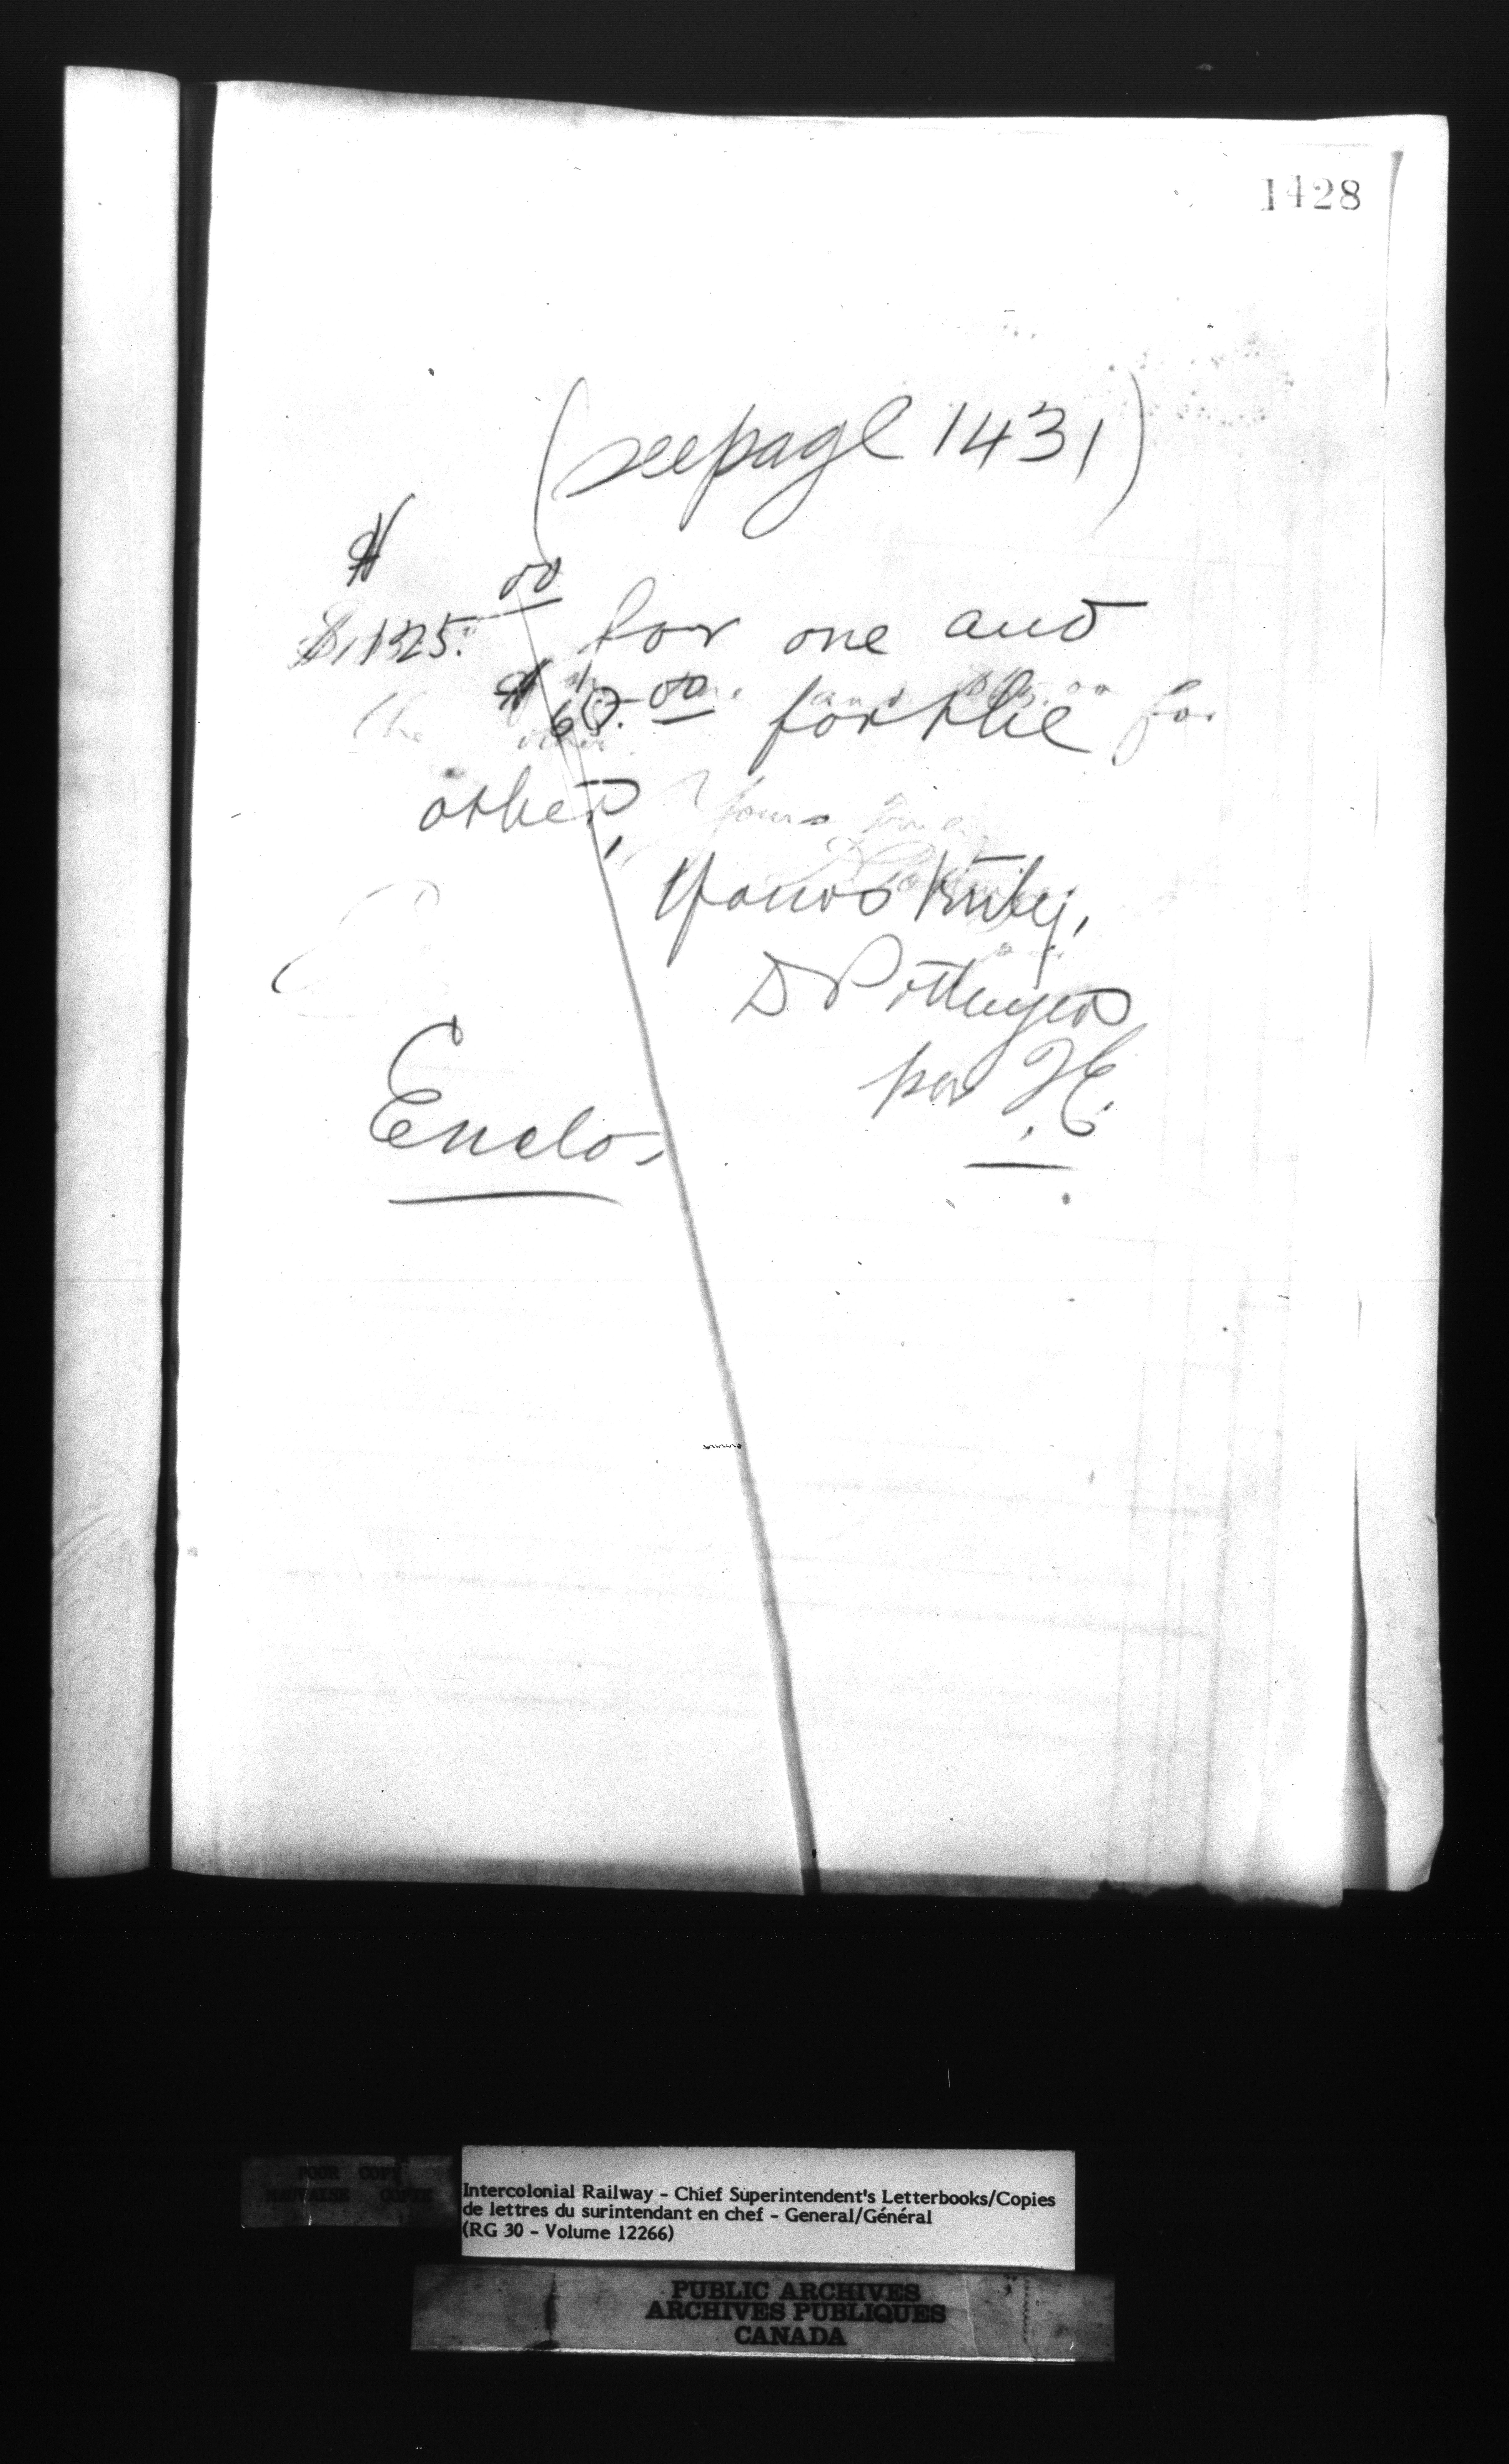 1428
(see page 1431)
$
$1,325.00 for one and
$ 60.00 for the for
the other
other,
Yours truly
Yours truly,
D Pottinger
per H.E.
Enclo.
POOR COPY
MAUVAISE COPIE
Intercolonial Railway - Chief Superintendent's Letterbooks/Copies
de lettres du surintendant en chef - General/Général
(RG 30 - Volume 12266)
PUBLIC ARCHIVES
ARCHIVES PUBLIQUES
CANADA